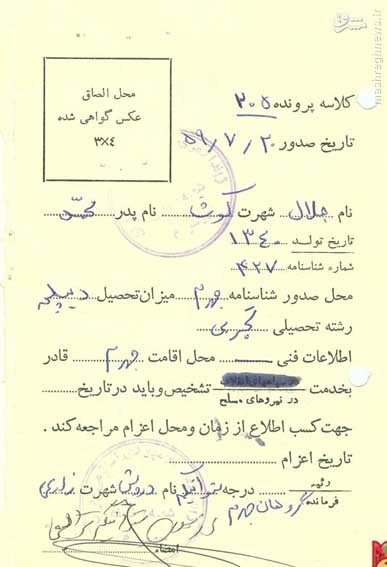 مشرق
mashreghnews.ir
کلاسه پرونده ۲۰۵
محل الصاق
عکس گواهی شده
۳×۴
تاریخ صدور ۵۹/۷/۲۰
نام جلال شهرت نام پدر محمد
تاریخ تولد ۱۳۴۰
شماره شناسنامه ۴۲۷
محل صدور شناسنامه جهرم میزان تحصیل دیپلم
رشته تحصیلی
اطلاعات فنی محل اقامت جهرم قادر
بخدمت در نیروهای مسلح تشخیص و باید در تاریخ
جهت کسب اطلاع از زمان و محل اعزام مراجعه کند .
تاریخ اعزام
فرمانده گروهان جهرم درجه نام شهرت
امضاء